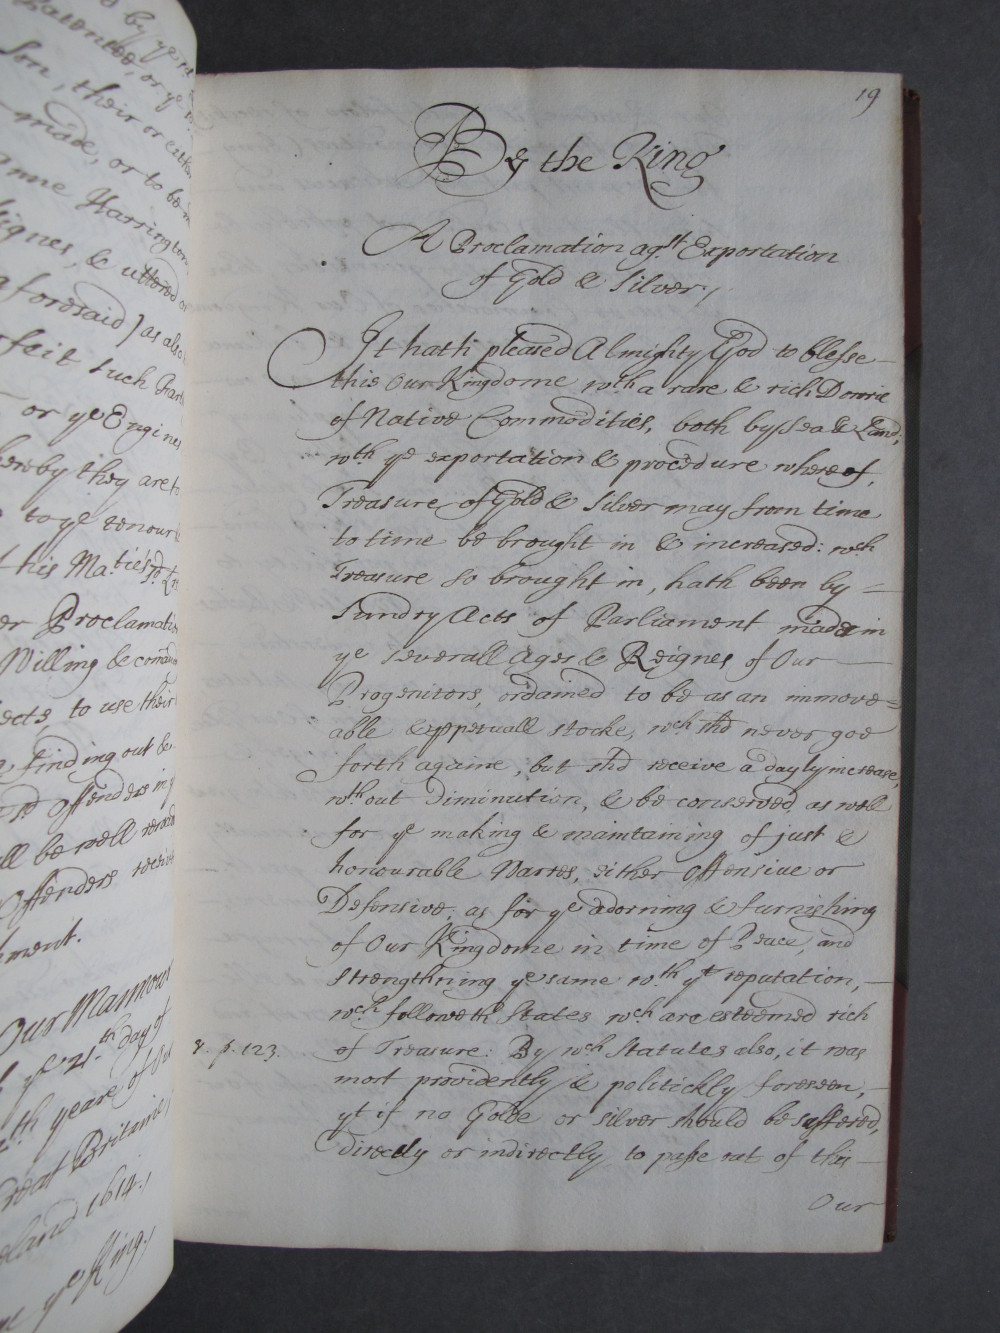 d by ye
Patentee, or ye
son, their or either
made, or to be
Anne Harrington
signes, & uttered or
aforesaid) as also
rfeit such Farth
or ye Engines
hereby they are to
to ye tenour
t his Ma:ties sd
er Proclamatio
Willing & coman
jects, to use their
finding out &
sd Offenders in y
ll be well
Offenders receive
hment.
Our Mannour
ye 21th day of
th yeare of Our
reat Britaine
land 1614./
ye King./
19
By the King
A Proclamation agst Exportation
of Gold & Silver./
It hath pleased Almighty God to blesse
this Our Kingdome wth a rare & rich Dowrie
of Native Commodities, both by Sea & Land,
wth ye exportation & procedure whereof,
Treasure of Gold & Silver may from time
to time be brought in & increased: wch
Treasure so brought in, hath been by =
Sundry Acts of Parliament made in
ye severall Ages & Reignes of Our
Progenitors, ordained to be as an immove=
able & ppetuall stocke, wch shd never goe
forth againe, but shd receive a dayly increase,
wthout Diminution, & be conserved as well
for ye making & maintaining of just &
honourable Warres, either Offensive or
Defensive, as for ye adorning & furnishing
of Our Kingdome in time of Peace, and
strengthning ye same wth yt reputation,
wch followeth States wch are esteemed rich
v. p. 123. of Treasure: By wch Statutes also, it was
most providently & politickly foreseen,
yt if no Golde or silver should be suffered,
directly or indirectly to passe out of this
Our